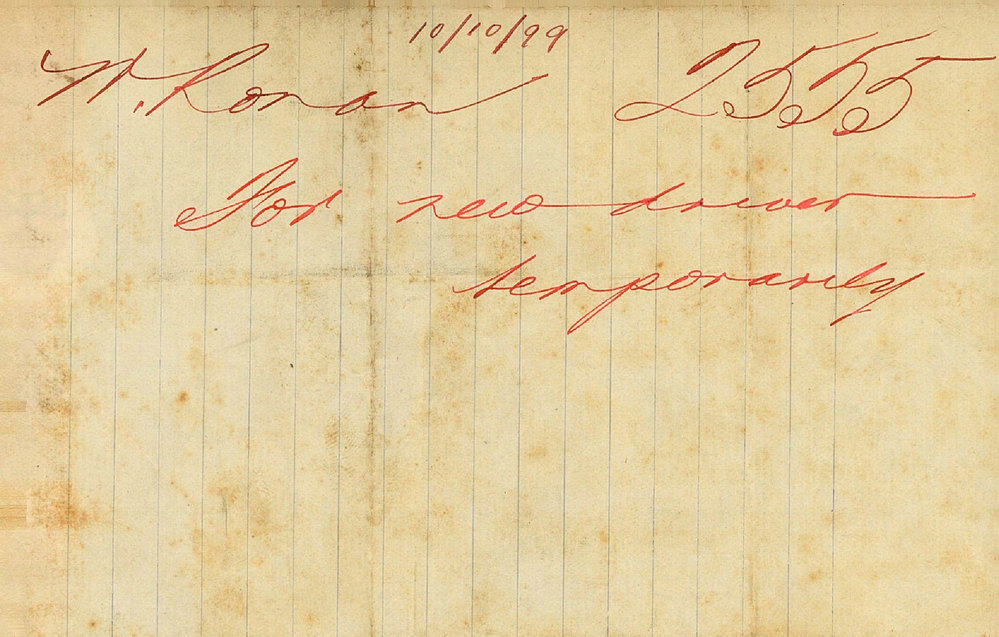 10/10/99
W. Ronan 2555
For new driver
temporarily